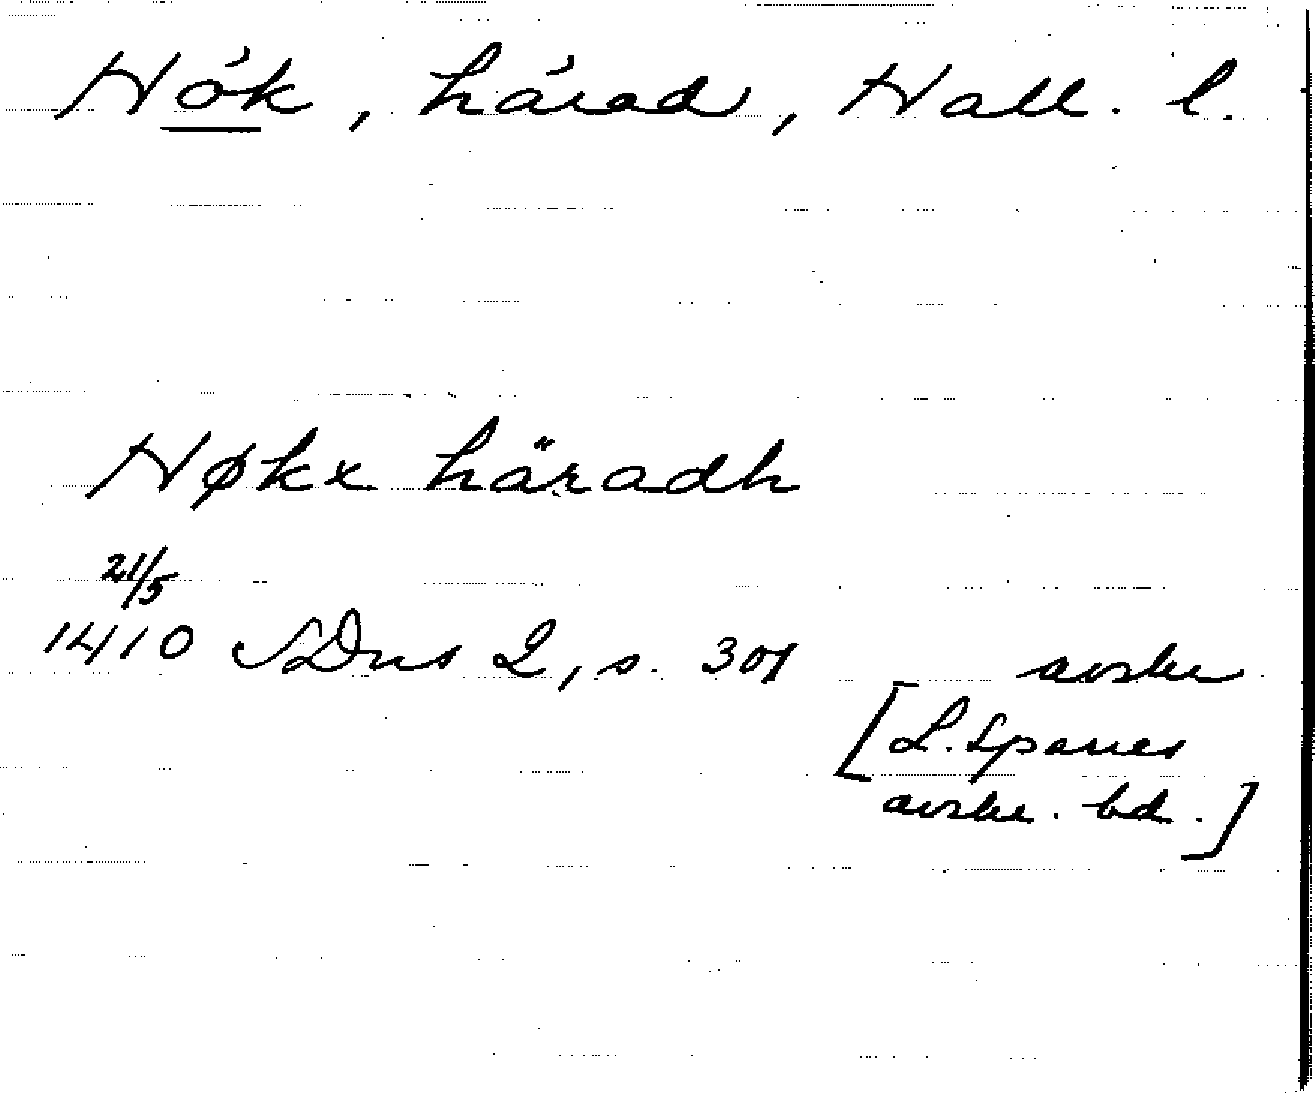 Hök, härad, Hall. l.
Høkx häradh
21/5
1410 SDns 2, s. 301 avskr.
[L. Sparres
avskr. bd.]